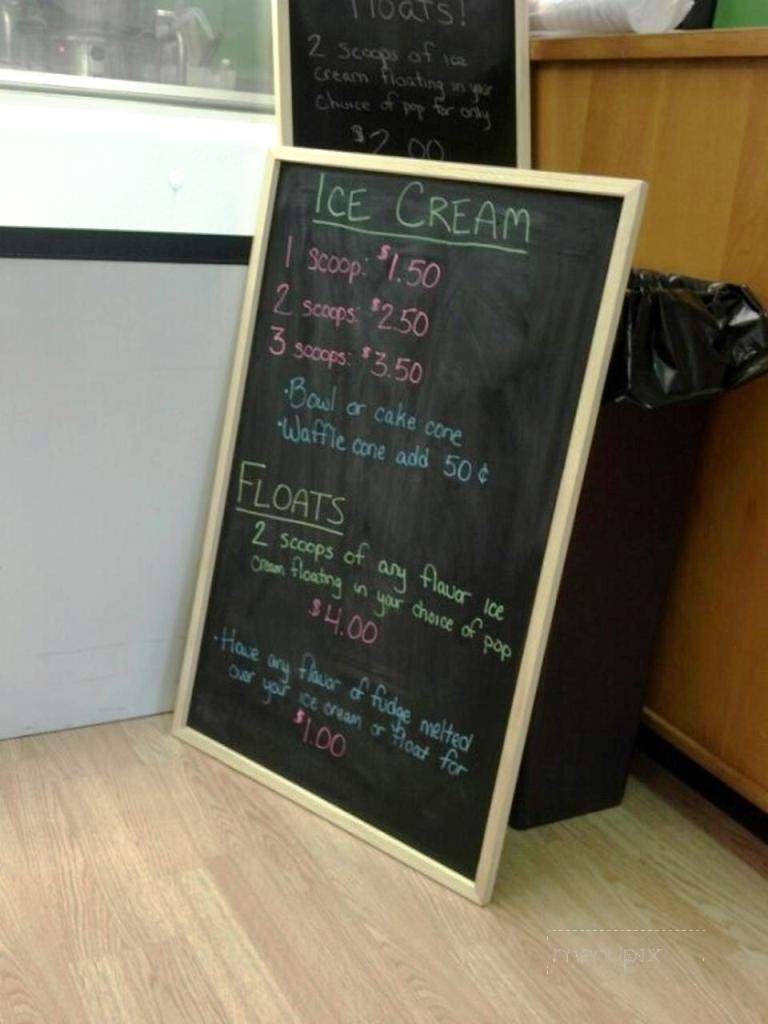 Floats!
2 scoops of ice
cream floating in your
choice of pop for only
$2.00
ICE CREAM
1 scoop: $1.50
2 scoops: $2.50
3 scoops: $3.50
·Bowl or cake cone
·Waffle cone add 50¢
FLOATS
2 scoops of any flavor ice
cream floating in your choice of pop
$4.00
·Have any flavor of fudge melted
over your ice cream or float for
$1.00
menupix